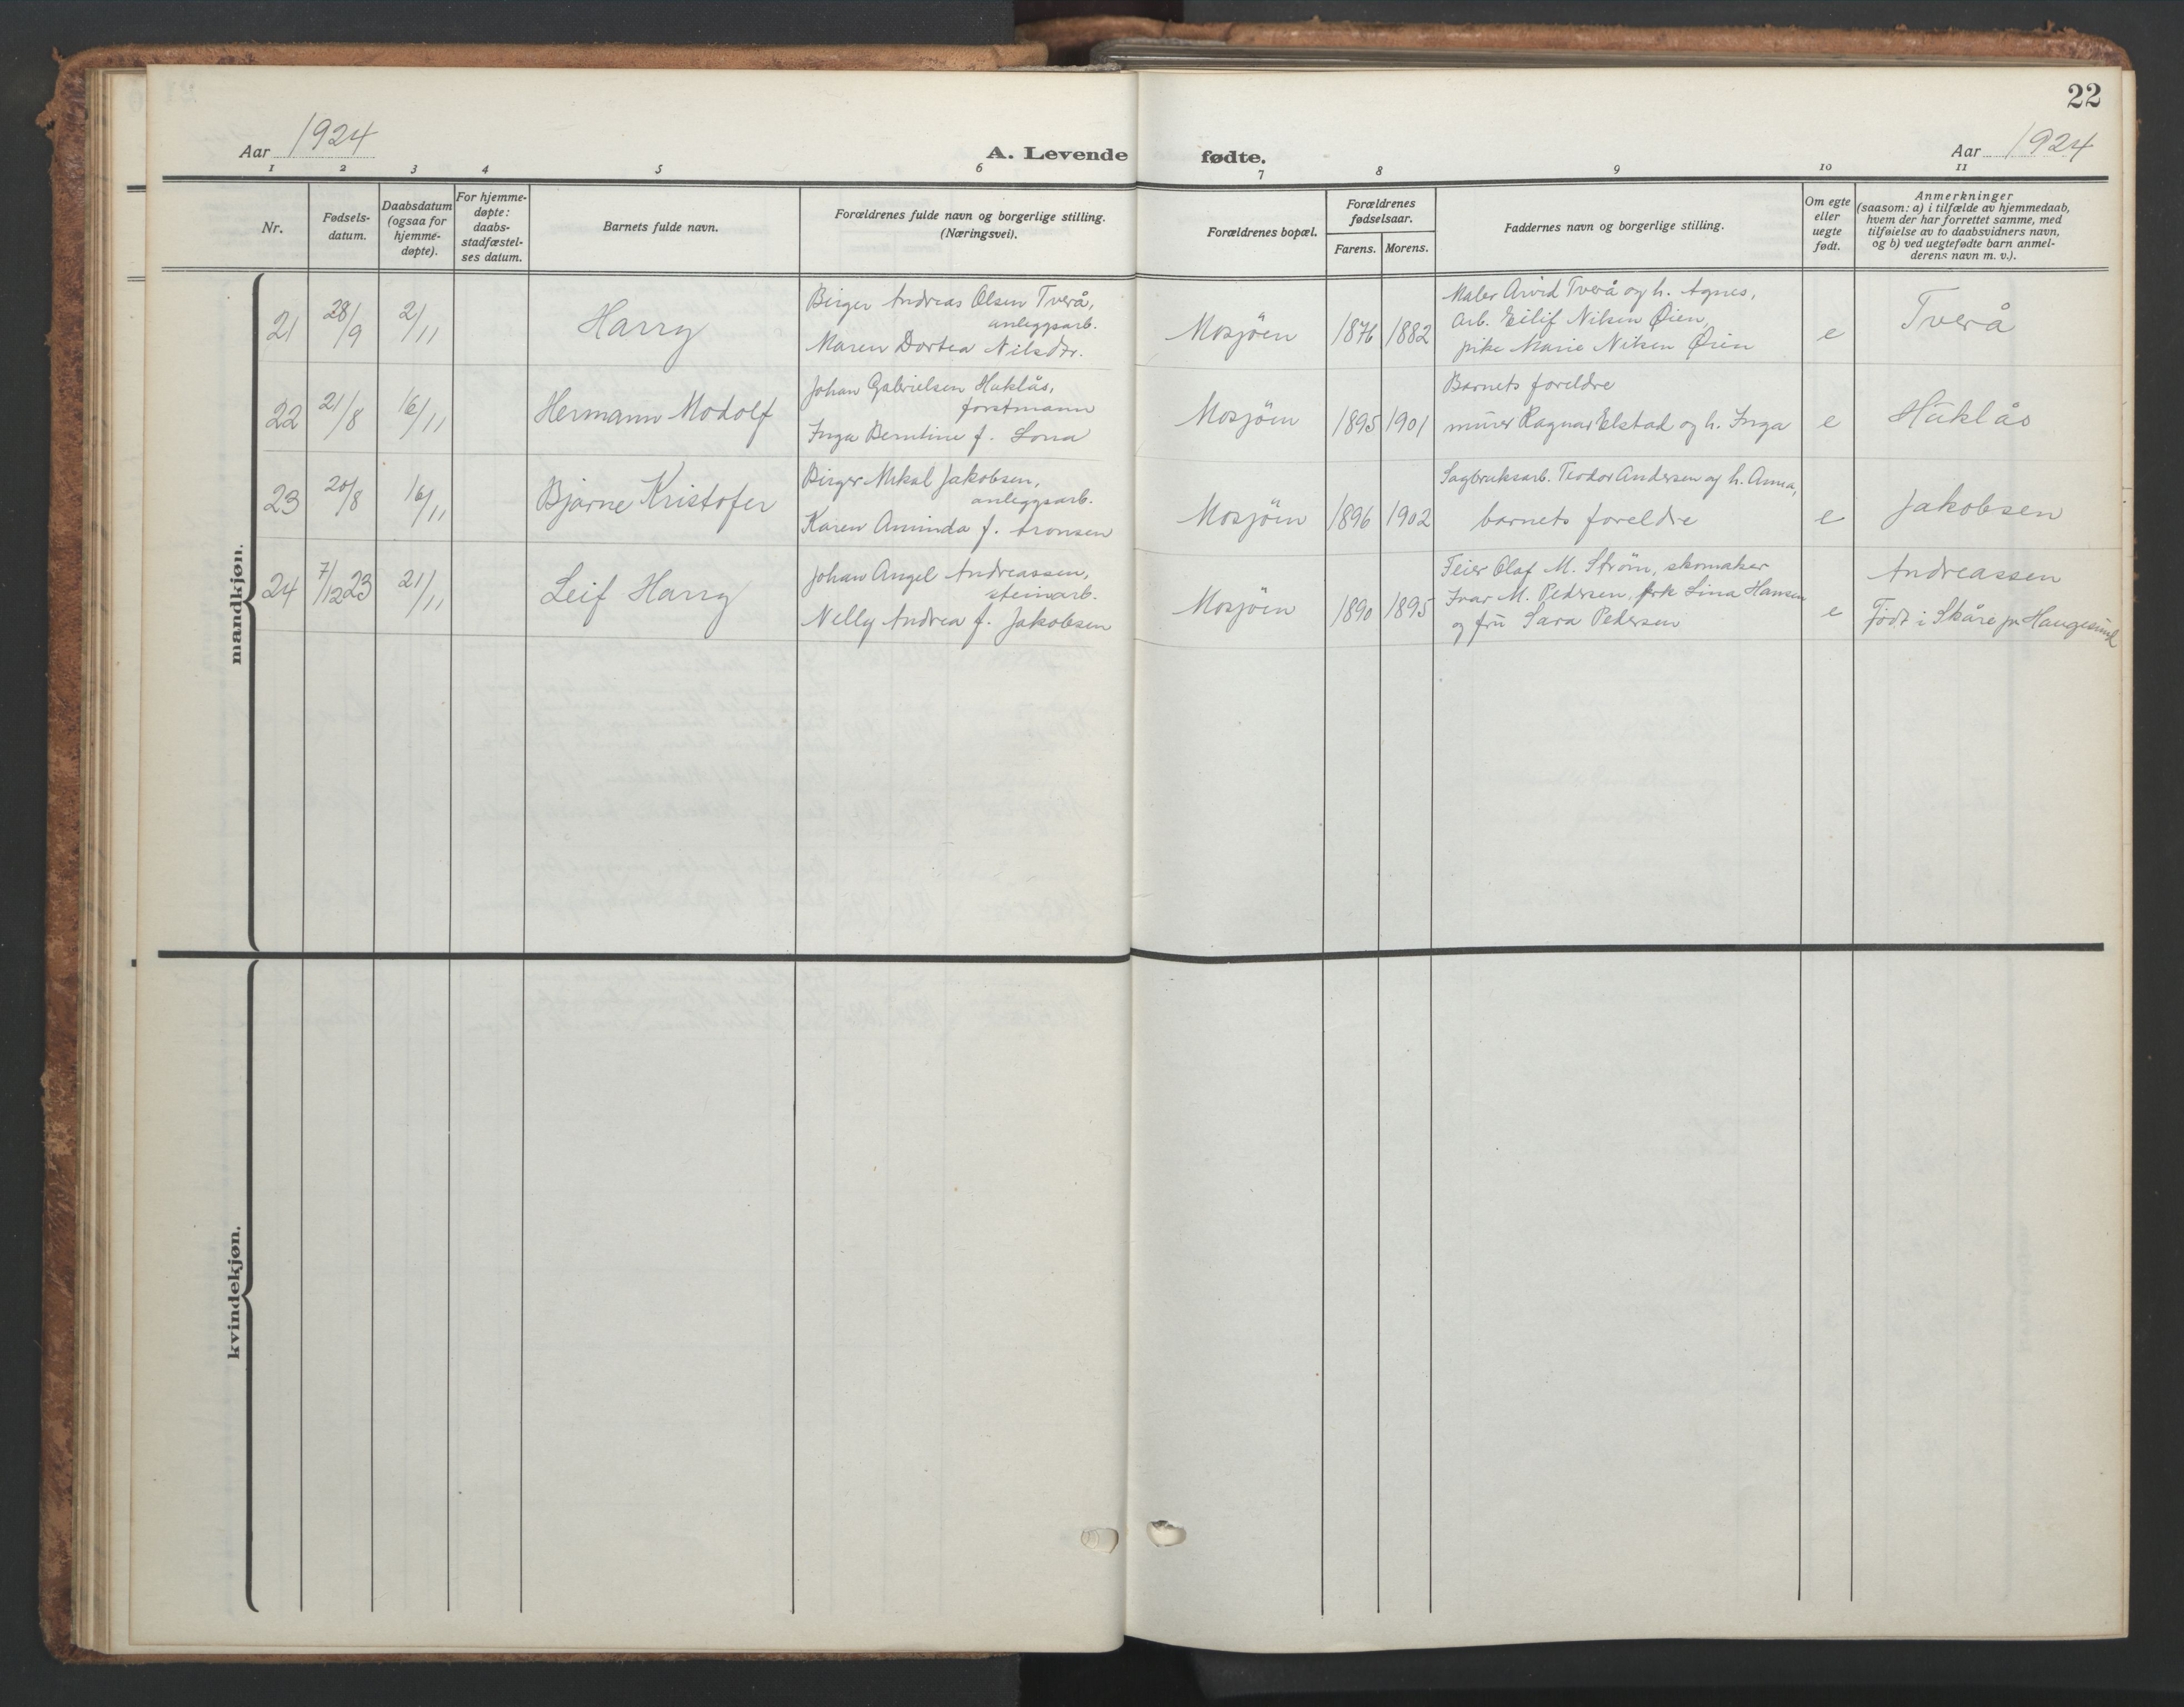 22
Aar 1924
A. Levende fødte.
Aar 1924
1 2 3 4 5 6 7 8 9 10 11
Nr.
Fødsels-
datum.
Daabsdatum
(ogsaa for
hjemme-
døpte).
For hjemme-
døpte:
daabs-
stadfæstel-
ses datum.
Barnets fulde navn.
Forældrenes fulde navn og borgerlige stilling.
(Næringsvei).
Forældrenes bopæl.
Forældrenes
fødselsaar.
Farens. Morens.
Faddernes navn og borgerlige stilling.
Om egte
eller
uegte
født.
Anmerkninger
(saasom: a) i tilfælde av hjemmedaab,
hvem der har forrettet samme, med
tilføielse av to daabsvidners navn,
og b) ved uegtefødte barn anmel-
derens navn m. v.).
mandkjøn.
21
28/9
2/11
Harry
Birger Andreas Olsen Tverå,
anleggsarb.
Maren Dortea Nilsdtr.
Mosjöen
1876
1882
Maler Arvid Tverå og h. Agnes,
arb. Eilif Nilsen Øien,
pike Marie Nilsen Øien
e
Tverå
22
21/8
16/11
Hermann Modolf
Johan Gabrielsen Huklås,
forstmann
Inga Berntine f. Lona
Mosjöen
1895
1901
Barnets foreldre
murer Ragnar Elstad og h. Inga
e
Huklås
23
20/8
16/11
Bjarne Kristofer
Birger Mikal Jakobsen,
anleggsarb.
Karen Aminda f. Aronsen
Mosjöen
1896
1902
Sagbruksarb. Teodor Andersen og h. Anna,
barnets foreldre
e
Jakobsen
24
7/12 23
21/11
Leif Harry
Johan Angel Andreassen,
steinarb.
Nelly Andrea f. Jakobsen
Mosjöen
1890
1895
Feier Olaf M. Ström, skomaker
Ivar M. Pedersen, frk Lina Hansen
og fru Sara Pedersen
e
Andreassen
Födt i Skåre pr Haugesund
kvindekjøn.